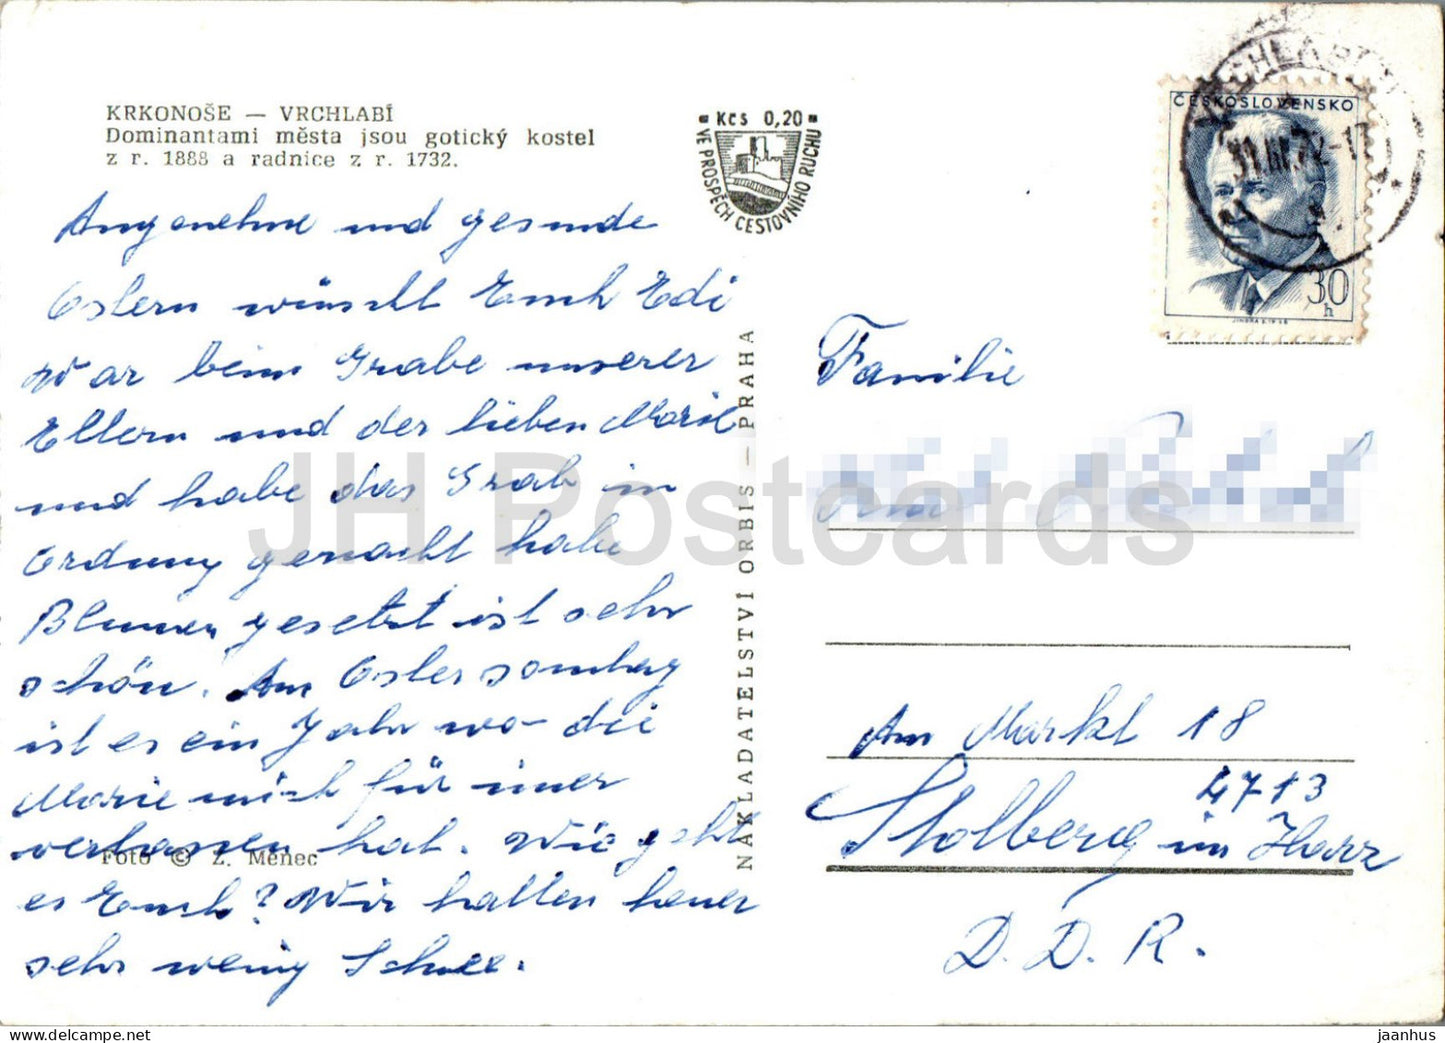 KRKONOŠE — VRCHLABÍ
Dominantami města jsou gotický kostel
z r. 1888 a radnice z r. 1732.
Kčs 0,20
VE PROSPĚCH CESTOVNÍHO RUCHU
ČESKOSLOVENSKO
30
h
JINDRA SCHMIDT
31.III.72-17
Angenehme und gesunde
Ostern wünscht Euch Edi
War beim Grabe unserer
Eltern und der lieben Marie
und habe das Grab in
Ordnung gemacht habe
Blumen gesetzt ist sehr
schön. Am Ostersonntag
ist es ein Jahr wo die
Marie mich für imer
verlassen hat. Wie geht
es Euch? Wir hatten heuer
sehr wenig Schnee.
Foto © Z. Menec
NAKLADATELSTVÍ ORBIS — PRAHA
Familie
Am Markt 18
4713
Stolberg im Harz
D. D. R.
JH Postcards
jaanhus